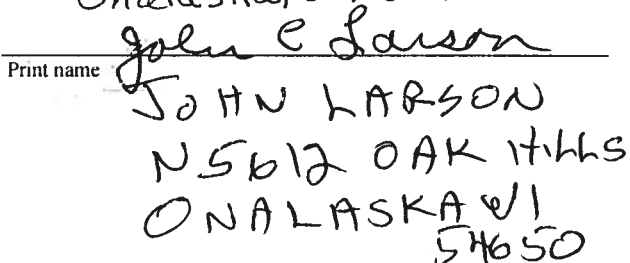 John C Larson
Print name
JOHN LARSON
N5612 OAK HILLS
ONALASKA WI
54650